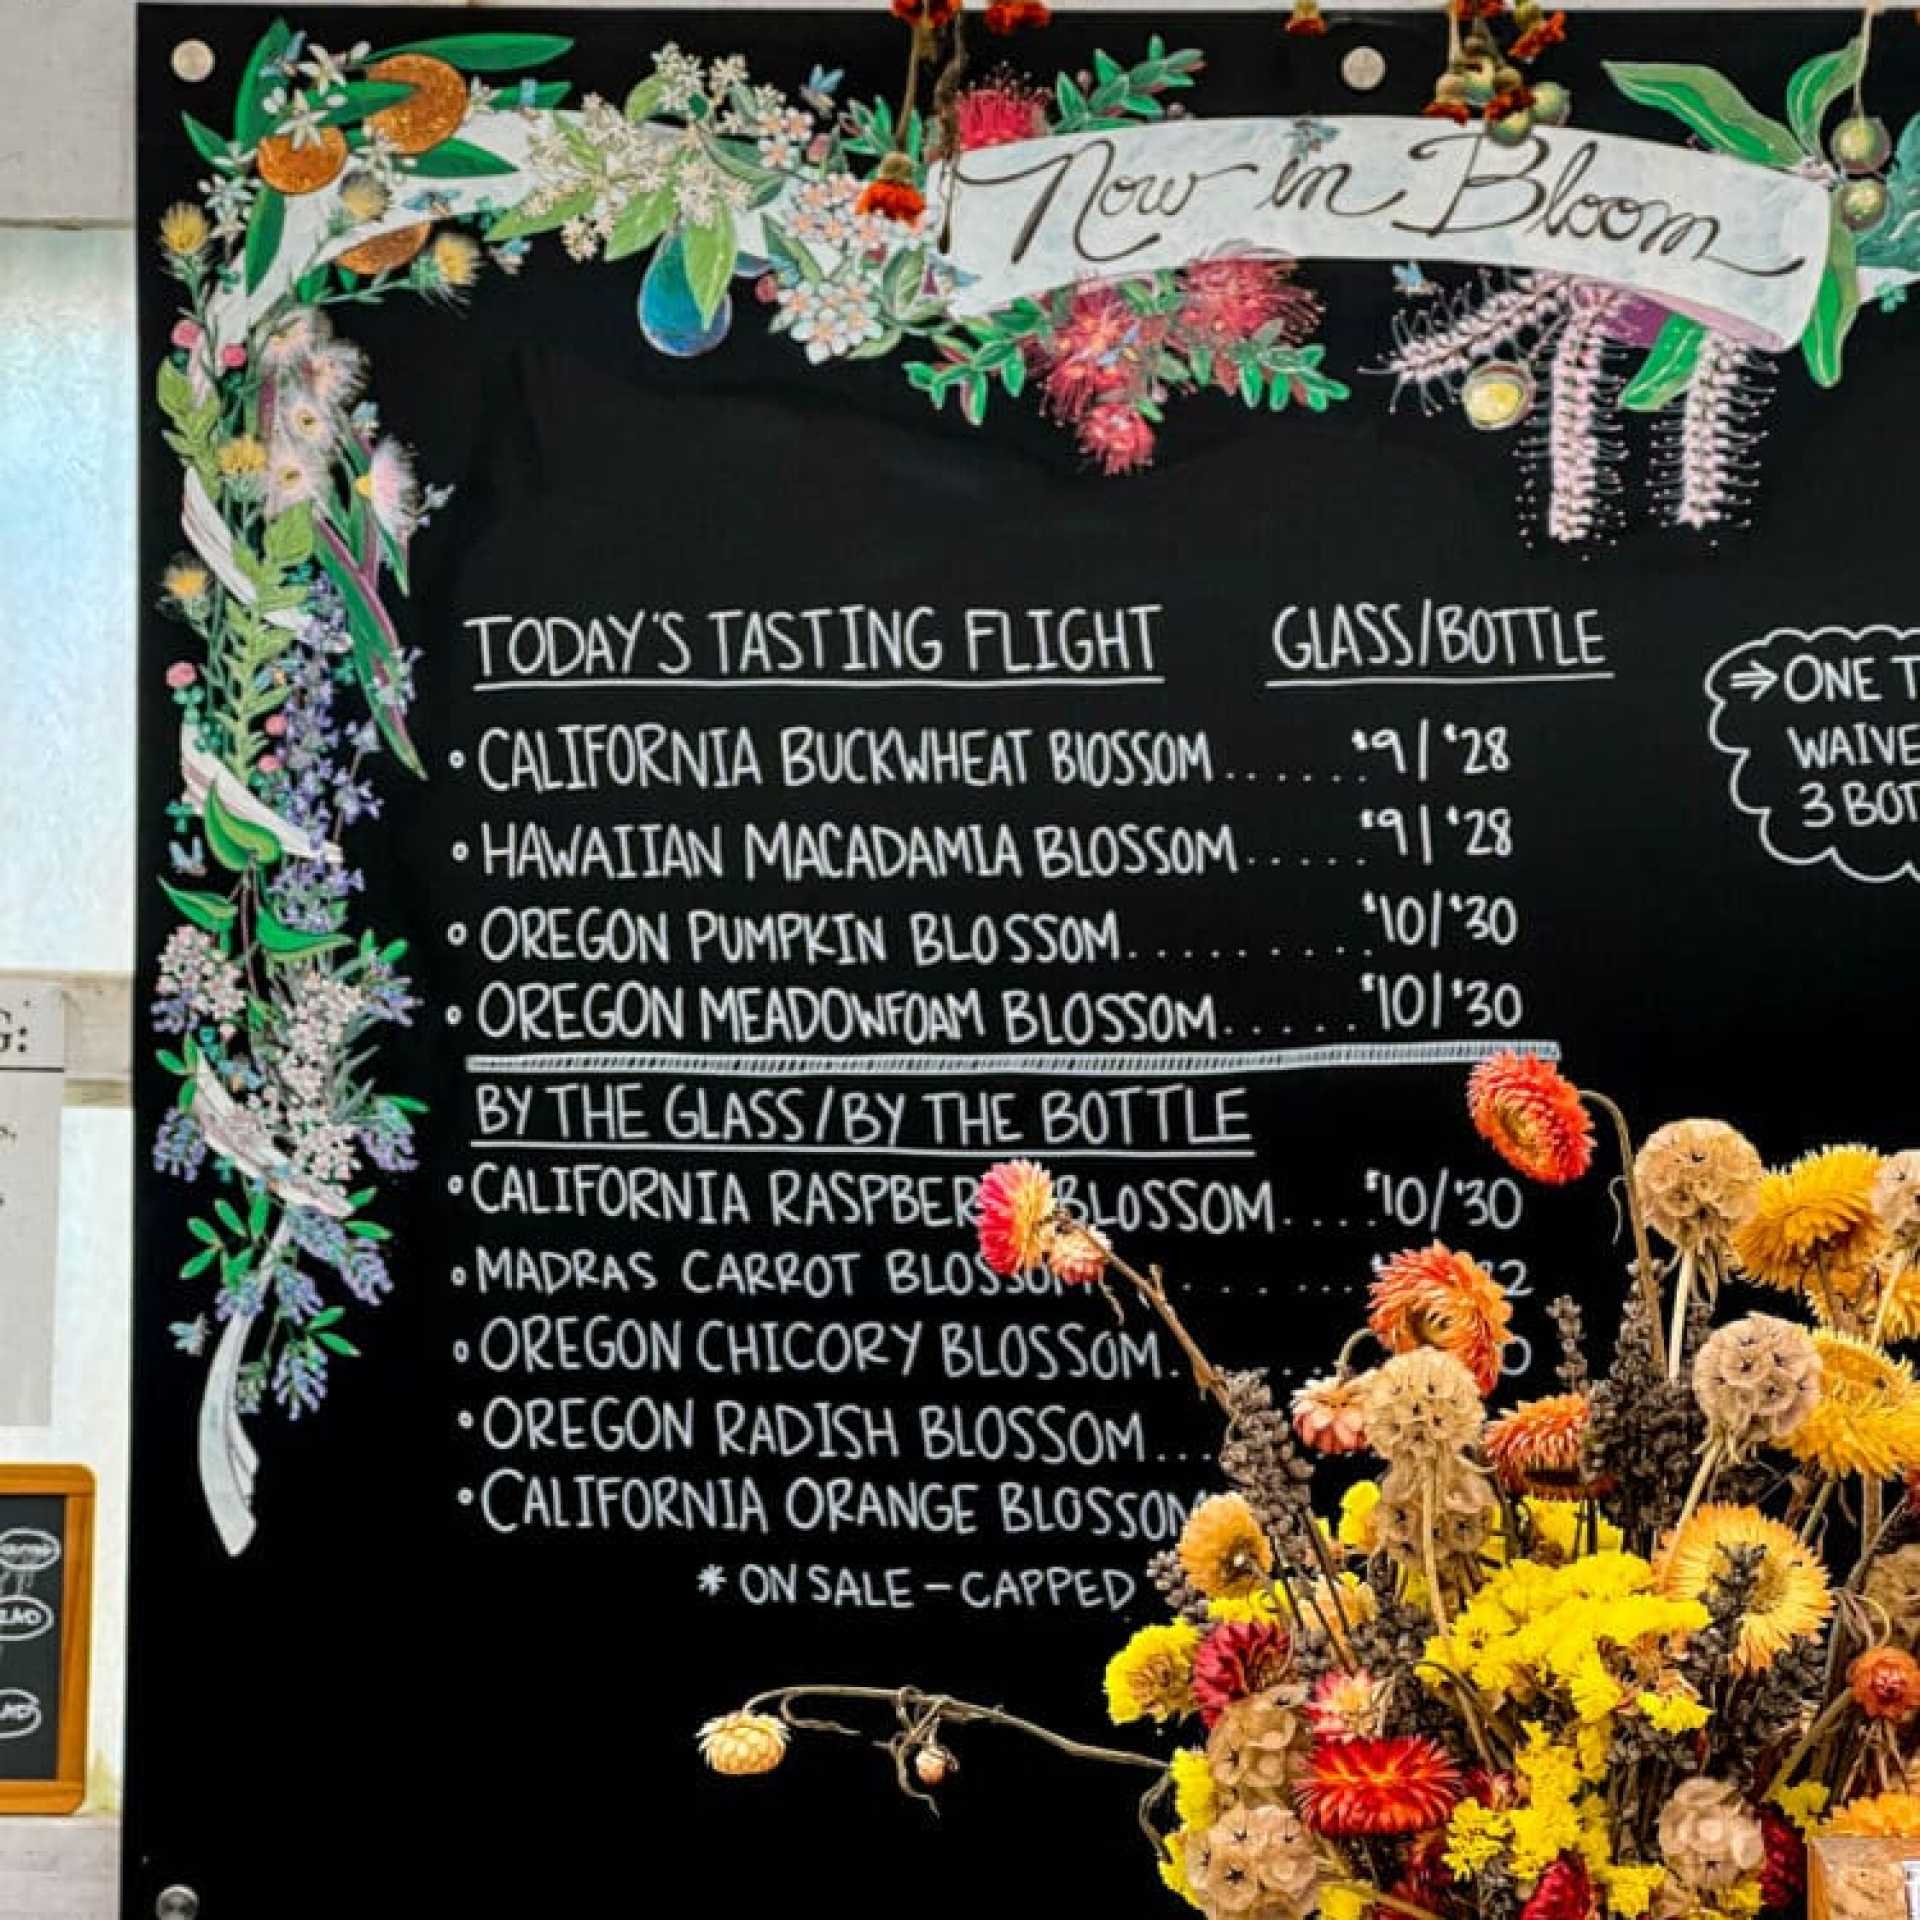 Now in Bloom
TODAY'S TASTING FLIGHT GLASS/BOTTLE
• CALIFORNIA BUCKWHEAT BLOSSOM...... $9/$28
• HAWAIIAN MACADAMIA BLOSSOM..... $9/$28
• OREGON PUMPKIN BLOSSOM......... $10/$30
• OREGON MEADOWFOAM BLOSSOM..... $10/$30
BY THE GLASS/BY THE BOTTLE
• CALIFORNIA BLOSSOM.... $10/$30
• MADRAS CARROT BLOSSOM
• OREGON CHICORY BLOSSOM.
• OREGON RADISH BLOSSOM...
• CALIFORNIA ORANGE BLOSSOM
* ON SALE - CAPPED
⇒ ONE
3